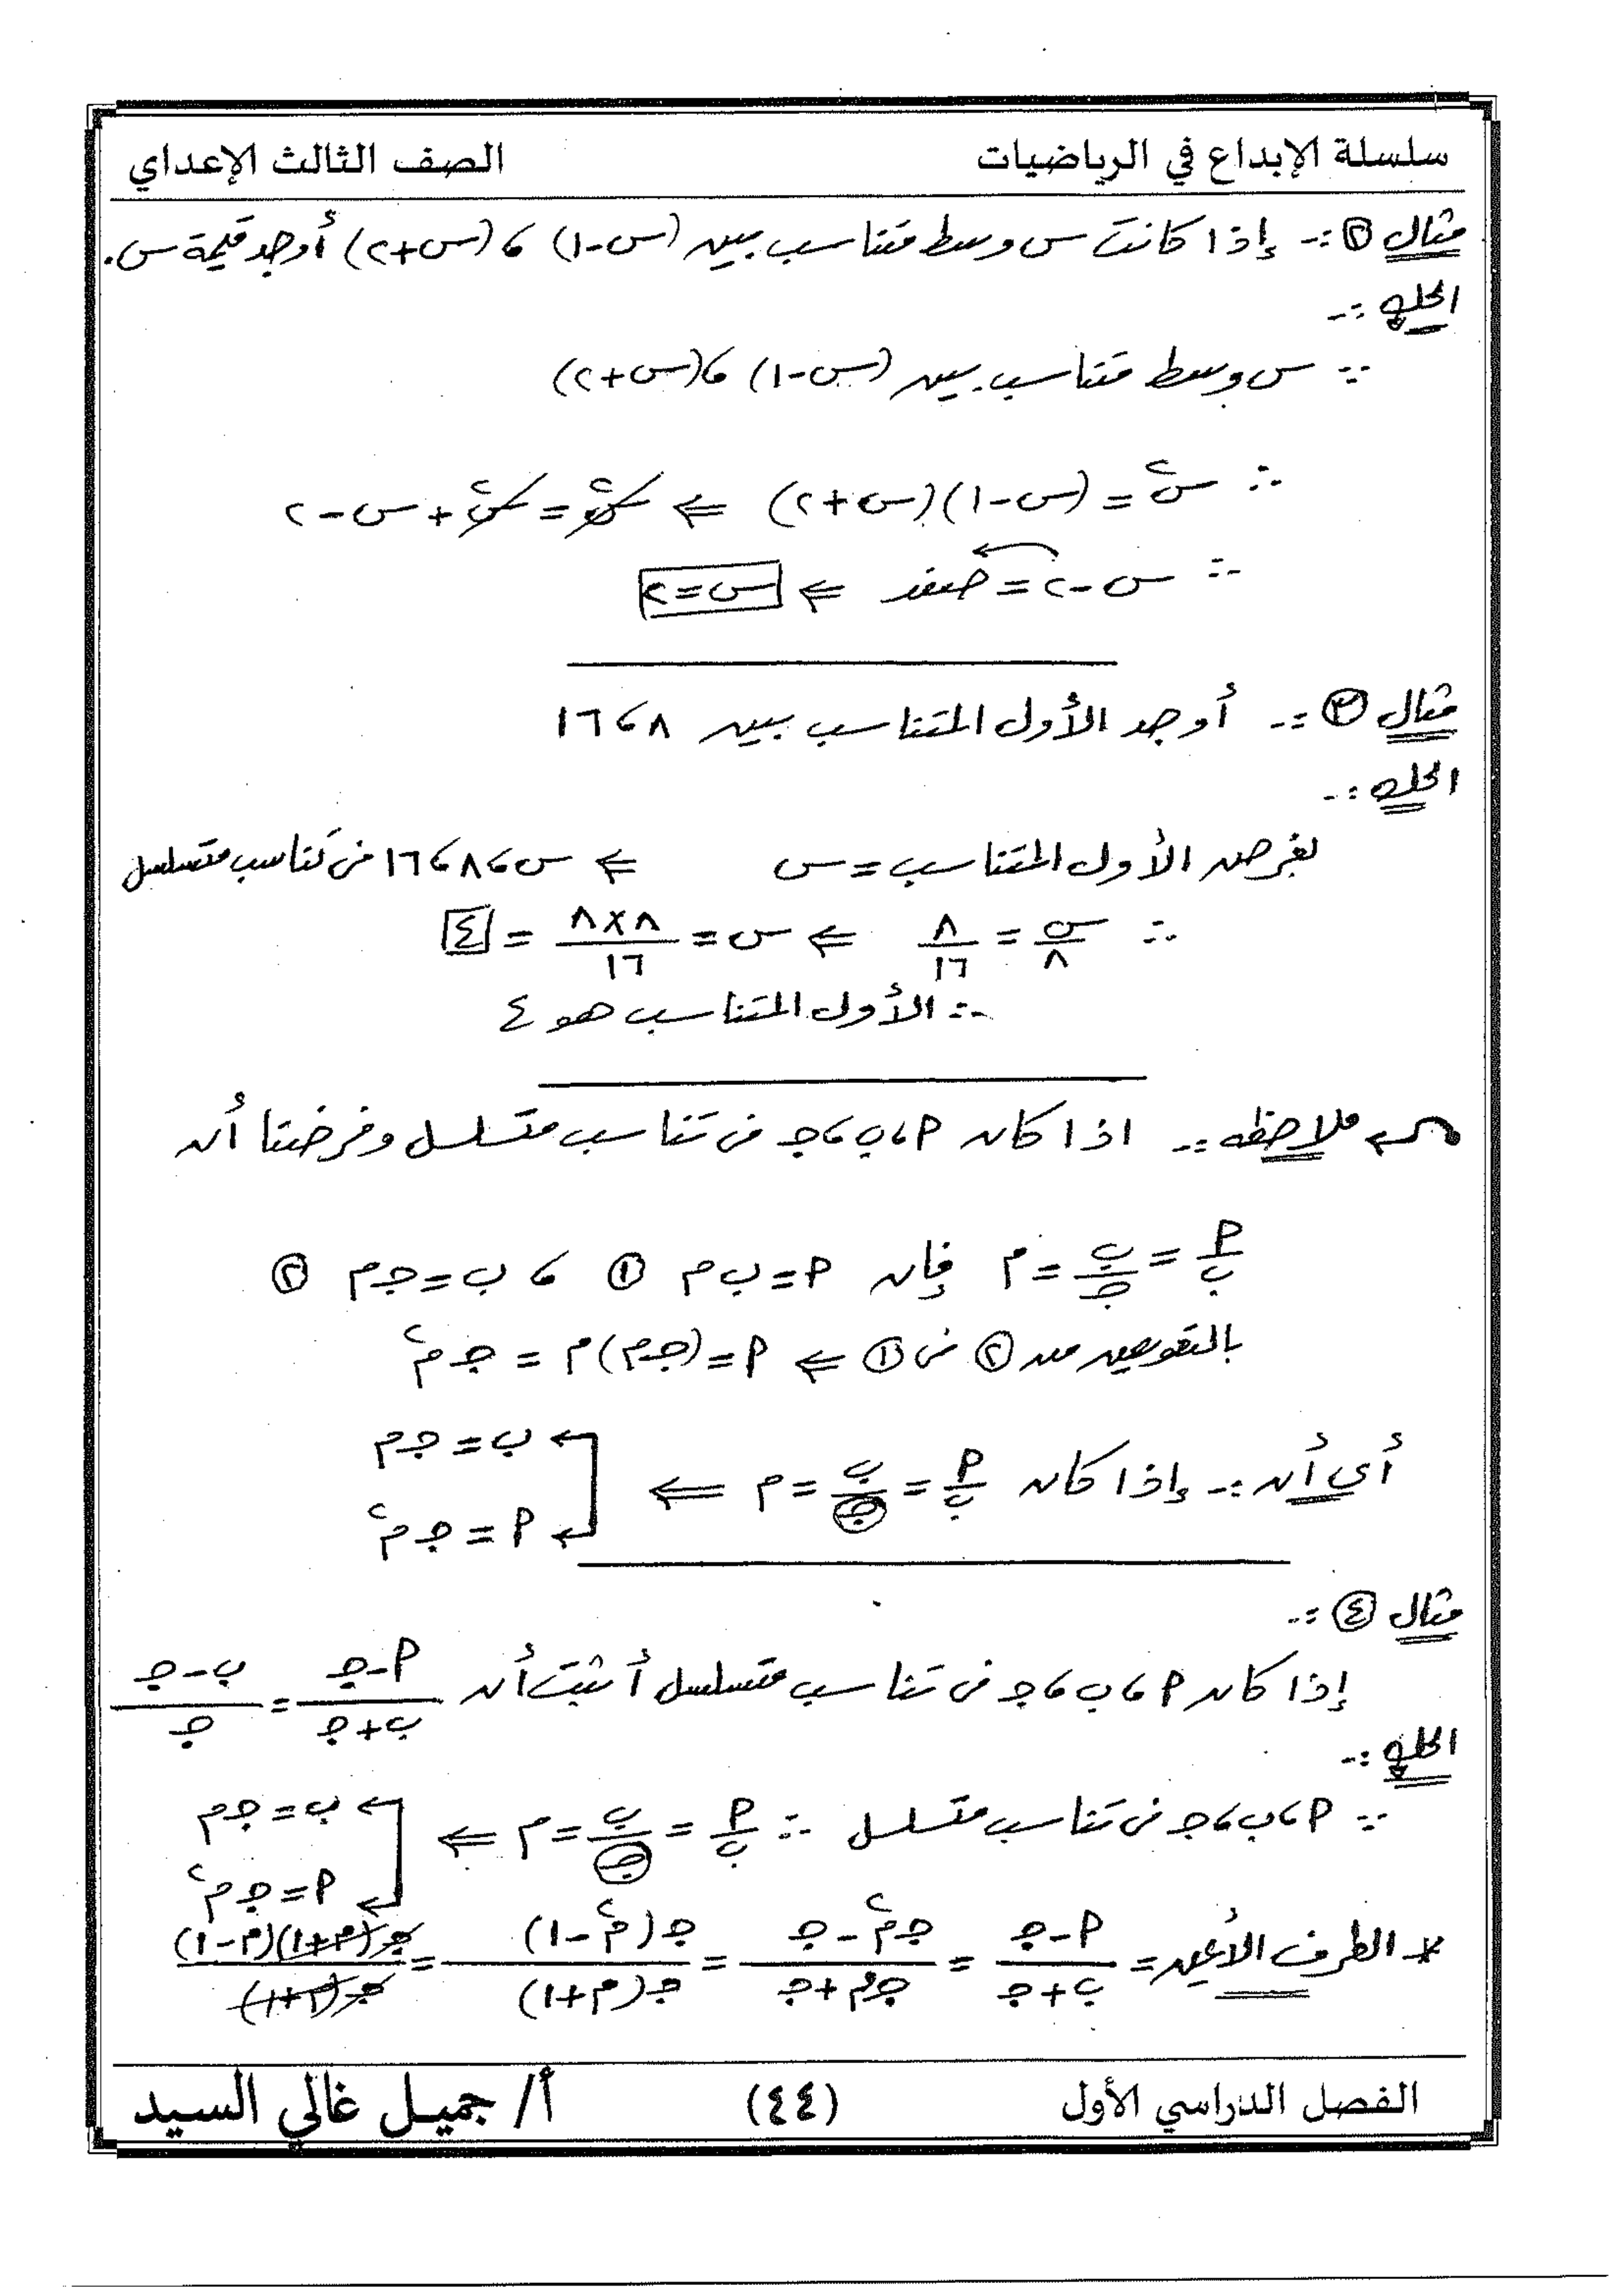 سلسلة الإبداع في الرياضيات الصف الثالث الإعداي
مثال ② :- إذا كانت س وسط متناسب بين (س-١) ، (س+٢) أوجد قيمة س.
الحل :-
∵ س وسط متناسب بين (س-١) ، (س+٢)
∴ س٢ = (س-١)(س+٢) ⇐ س٢ = س٢ + س - ٢
∴ س - ٢ = صفر ⇐ س = ٢
مثال ③ :- أوجد الأول المتناسب بين ٨ ، ١٦
الحل :-
بفرض الأول المتناسب = س ⇐ س ، ٨ ، ١٦ فى تناسب متسلسل
∴ س/٨ = ٨/١٦ ⇐ س = ٨×٨/١٦ = ٤
∴ الأول المتناسب هو ٤
ملاحظه :- اذا كان أ ، ب ، جـ فى تناسب متسلسل وفرضنا أن
أ/ب = ب/جـ = م فإن أ = ب م ① ، ب = جـ م ②
بالتعويض من ② فى ① ⇐ أ = (جـ م) م = جـ م٢
أي أن :- إذا كان أ/ب = ب/جـ = م ⇐ ب = جـ م
أ = جـ م٢
مثال ④ :-
إذا كان أ ، ب ، جـ فى تناسب متسلسل أثبت أن (أ-جـ)/(ب+جـ) = (ب-جـ)/جـ
الحل :-
∵ أ ، ب ، جـ فى تناسب متسلسل ∴ أ/ب = ب/جـ = م ⇐ ب = جـ م
أ = جـ م٢
* الطرف الأيمن = (أ-جـ)/(ب+جـ) = (جـ م٢ - جـ)/(جـ م + جـ) = جـ(م٢-١)/جـ(م+١) = جـ(م+١)(م-١)/جـ(م+١)
الفصل الدراسي الأول (٤٤) أ/ جميل غالي السيد